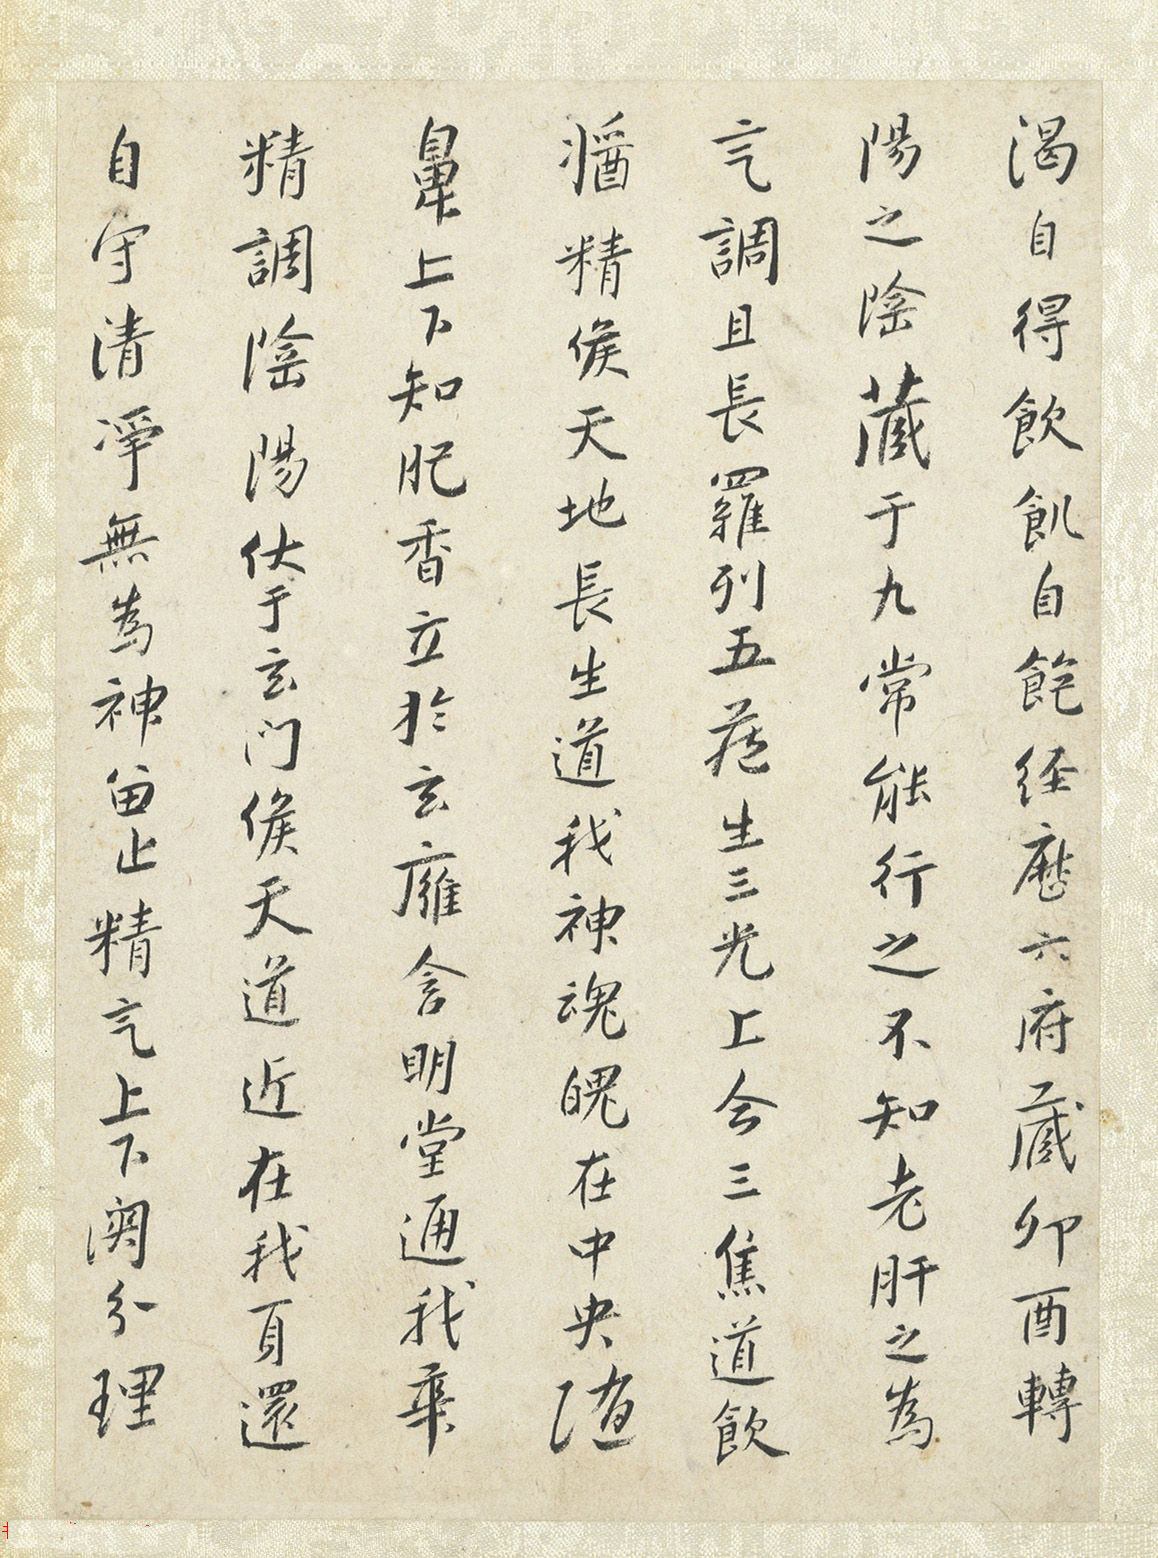 渴自得飲飢自飽経歷六府藏卯酉轉
陽之陰藏于九常能行之不知老肝之為
气調且長羅列五藏生三光上合三焦道飲
漿精候天地長生道我神魂魄在中央随
鼻上下知肥香立於玄廱含明堂通我華
精調陰陽伏于玄門候天道近在我頁還
自守清凈無為神留止精气上下関分理